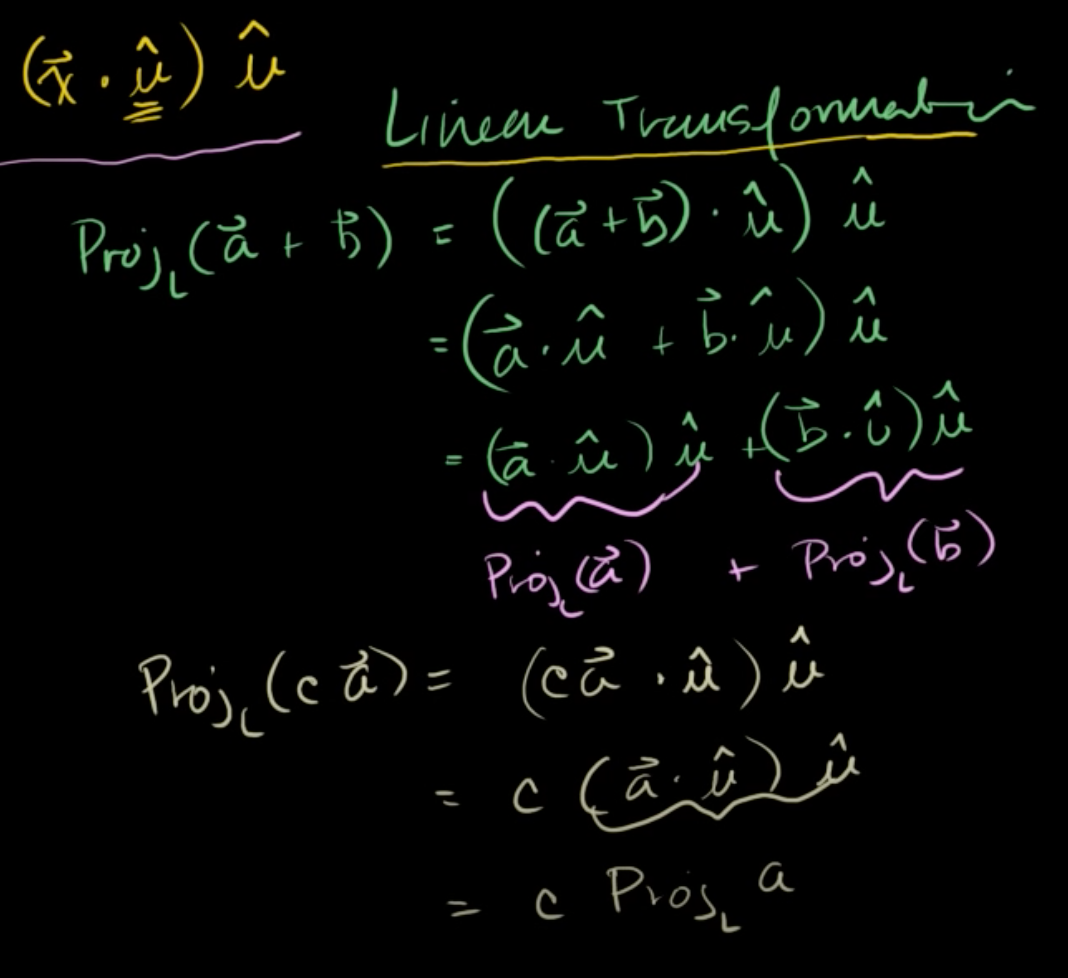 (x⃗ · û) û
Linear Transformation
Proj_L(a⃗ + b⃗) = ((a⃗ + b⃗) · û) û
= (a⃗ · û + b⃗ · û) û
= (a⃗ · û) û + (b⃗ · û) û
Proj_L(a⃗) + Proj_L(b⃗)
Proj_L(c a⃗) = (c a⃗ · û) û
= c (a⃗ · û) û
= c Proj_L a